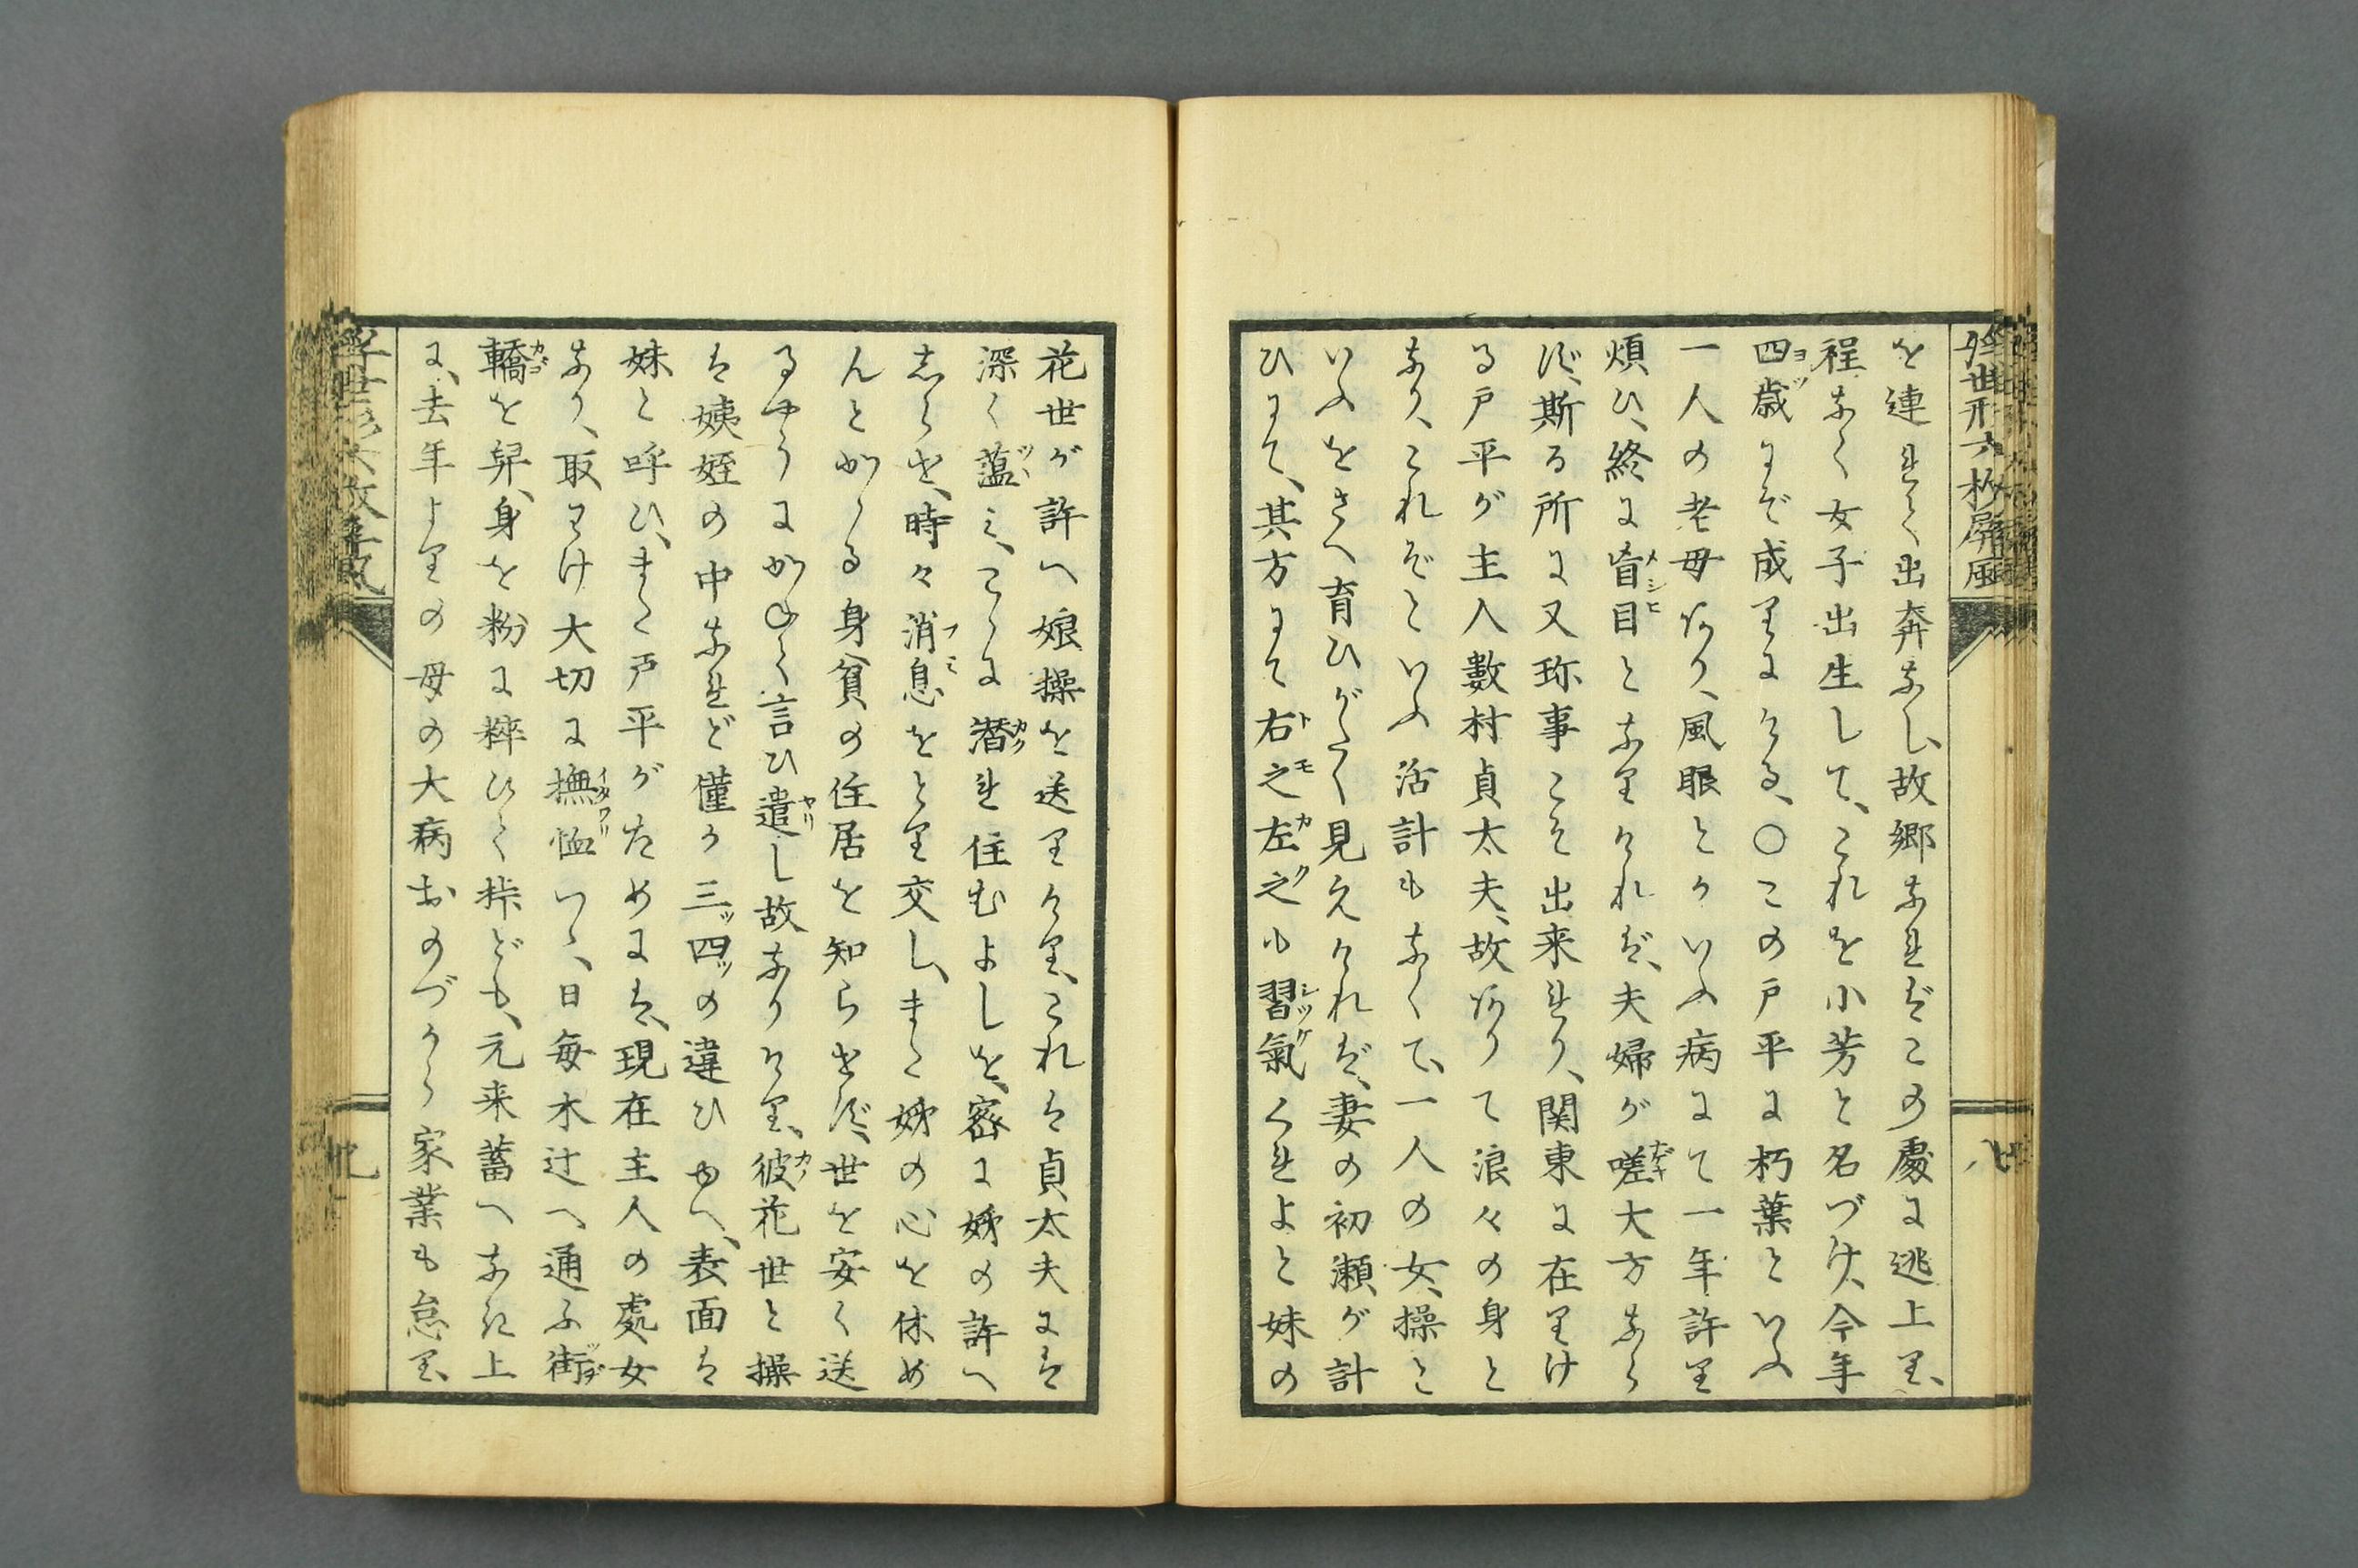 を連れて出奔なし、故郷なればこの処に逃上り、
程なく女子出生して、これを小芳と名づけ、今年
四歳にぞ成りにける、〇この戸平に朽葉といふ
一人の老母あり、風眼とかいふ病にて一年許り
煩ひ、終に盲目となりければ、夫婦が嗟大方なら
ず、斯る所に又珎事こそ出来れり、関東に在りけ
る戸平が主人數村貞太夫、故ありて浪々の身と
なり、これぞといふ活計もなくて、一人の女、操と
いふをさへ育ひがたく見えければ、妻の初瀬が計
ひにて、其方にて右之左之も習氣くれよと妹の
花世が許へ娘操を送りけり、これは貞太夫には
深く蘊ミ、こゝに潜れ住むよしを、密に姊の許へ
志らせ、時々消息をとり交し、また姊の心を休め
んとかゝる身貧の住居を知らせず、世を安く送
るやうにかねて言ひ遣し故なりけり、彼花世と操
は姨姪の中なれど僅か三ッ四ッの違ひゆへ、表面は
妹と呼ひ、また戸平がためには、現在主人の處女
なり、取わけ大切に撫恤いゝ、日毎木辻へ通ふ街
轎を舁、身を粉に粹ひて拵ども、元来蓄へなき上
に、去年よりの母の大病おのづから家業も怠り、